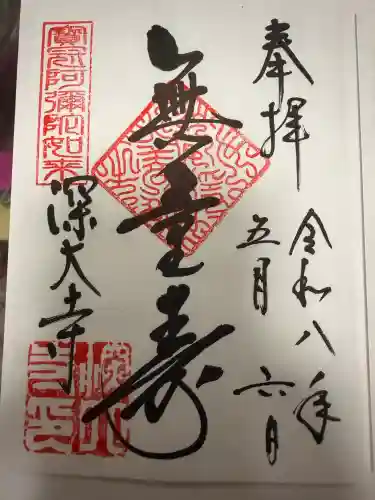 奉拝
令和八年
五月六日
無量壽
寶冠阿彌陀如来
深大寺